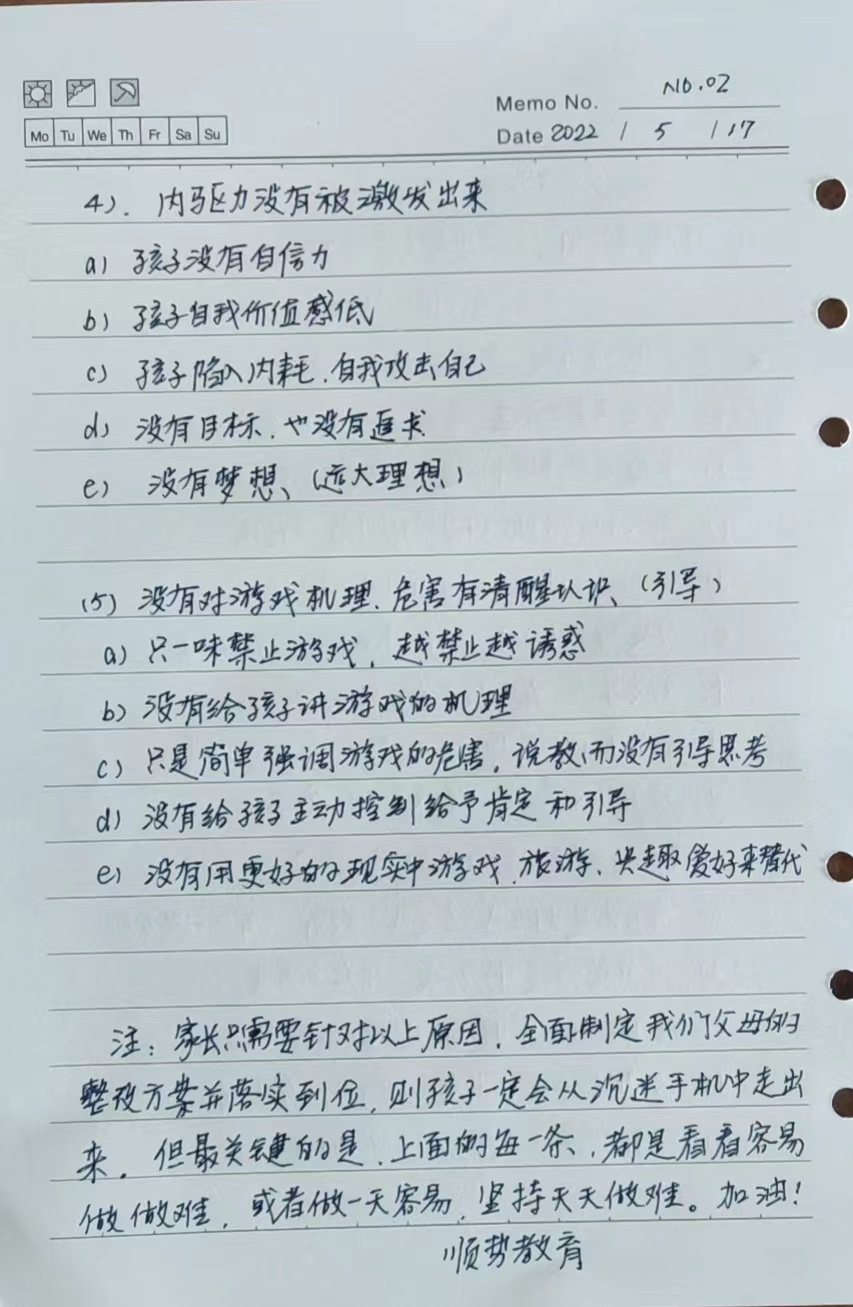 Memo No. NO.02
Mo Tu We Th Fr Sa Su
Date 2022 / 5 / 17
4）. 内驱力没有被激发出来
a) 孩子没有自信力
b) 孩子自我价值感低
c) 孩子陷入内耗，自我攻击自己
d) 没有目标，也没有追求
e) 没有梦想、（远大理想）
(5) 没有对游戏机理、危害有清醒认识、（引导）
a) 只一味禁止游戏，越禁止越诱惑
b) 没有给孩子讲游戏的机理
c) 只是简单强调游戏的危害，说教，而没有引导思考
d) 没有给孩子主动控制给予肯定和引导
e) 没有用更好的现实中游戏、旅游、兴趣爱好来替代
注：家长只需要针对以上原因，全面制定我们父母的
整改方案并落实到位，则孩子一定会从沉迷手机中走出
来。但最关键的是，上面的每一条，都是看看容易
做做难，或者做一天容易，坚持天天做难。加油！
顺势教育